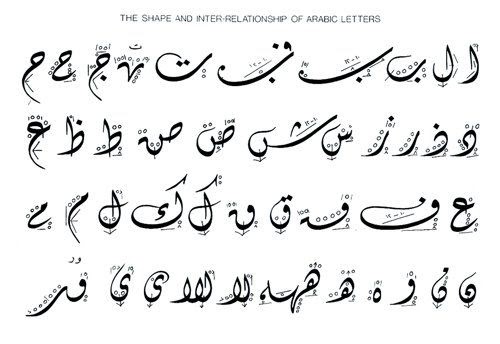 THE SHAPE AND INTER-RELATIONSHIP OF ARABIC LETTERS
ا ل ب ب ف ت ج ح ح
د ذ ر ز س ش ض ص ط ظ ع
ع ف ف ق ق ك ك ل م م
ن ن و ه ه ههه لا لا لا ي ي ور